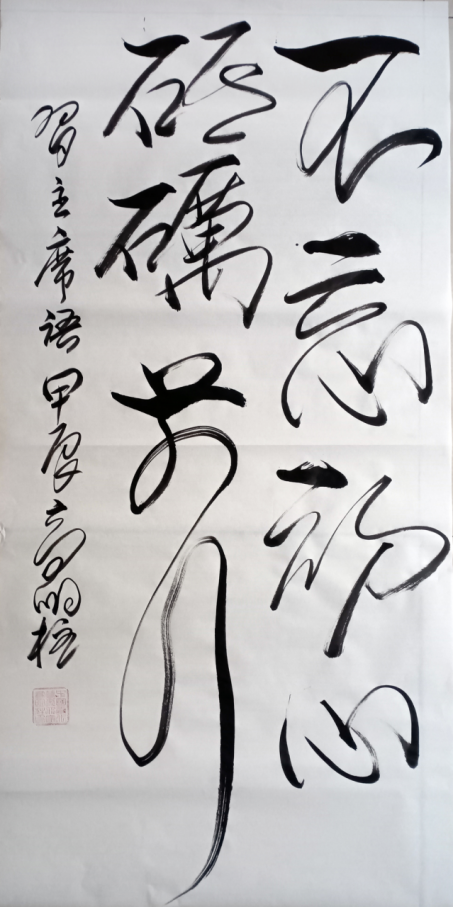 不忘初心
砥礪前行
習主席語甲辰高明柱